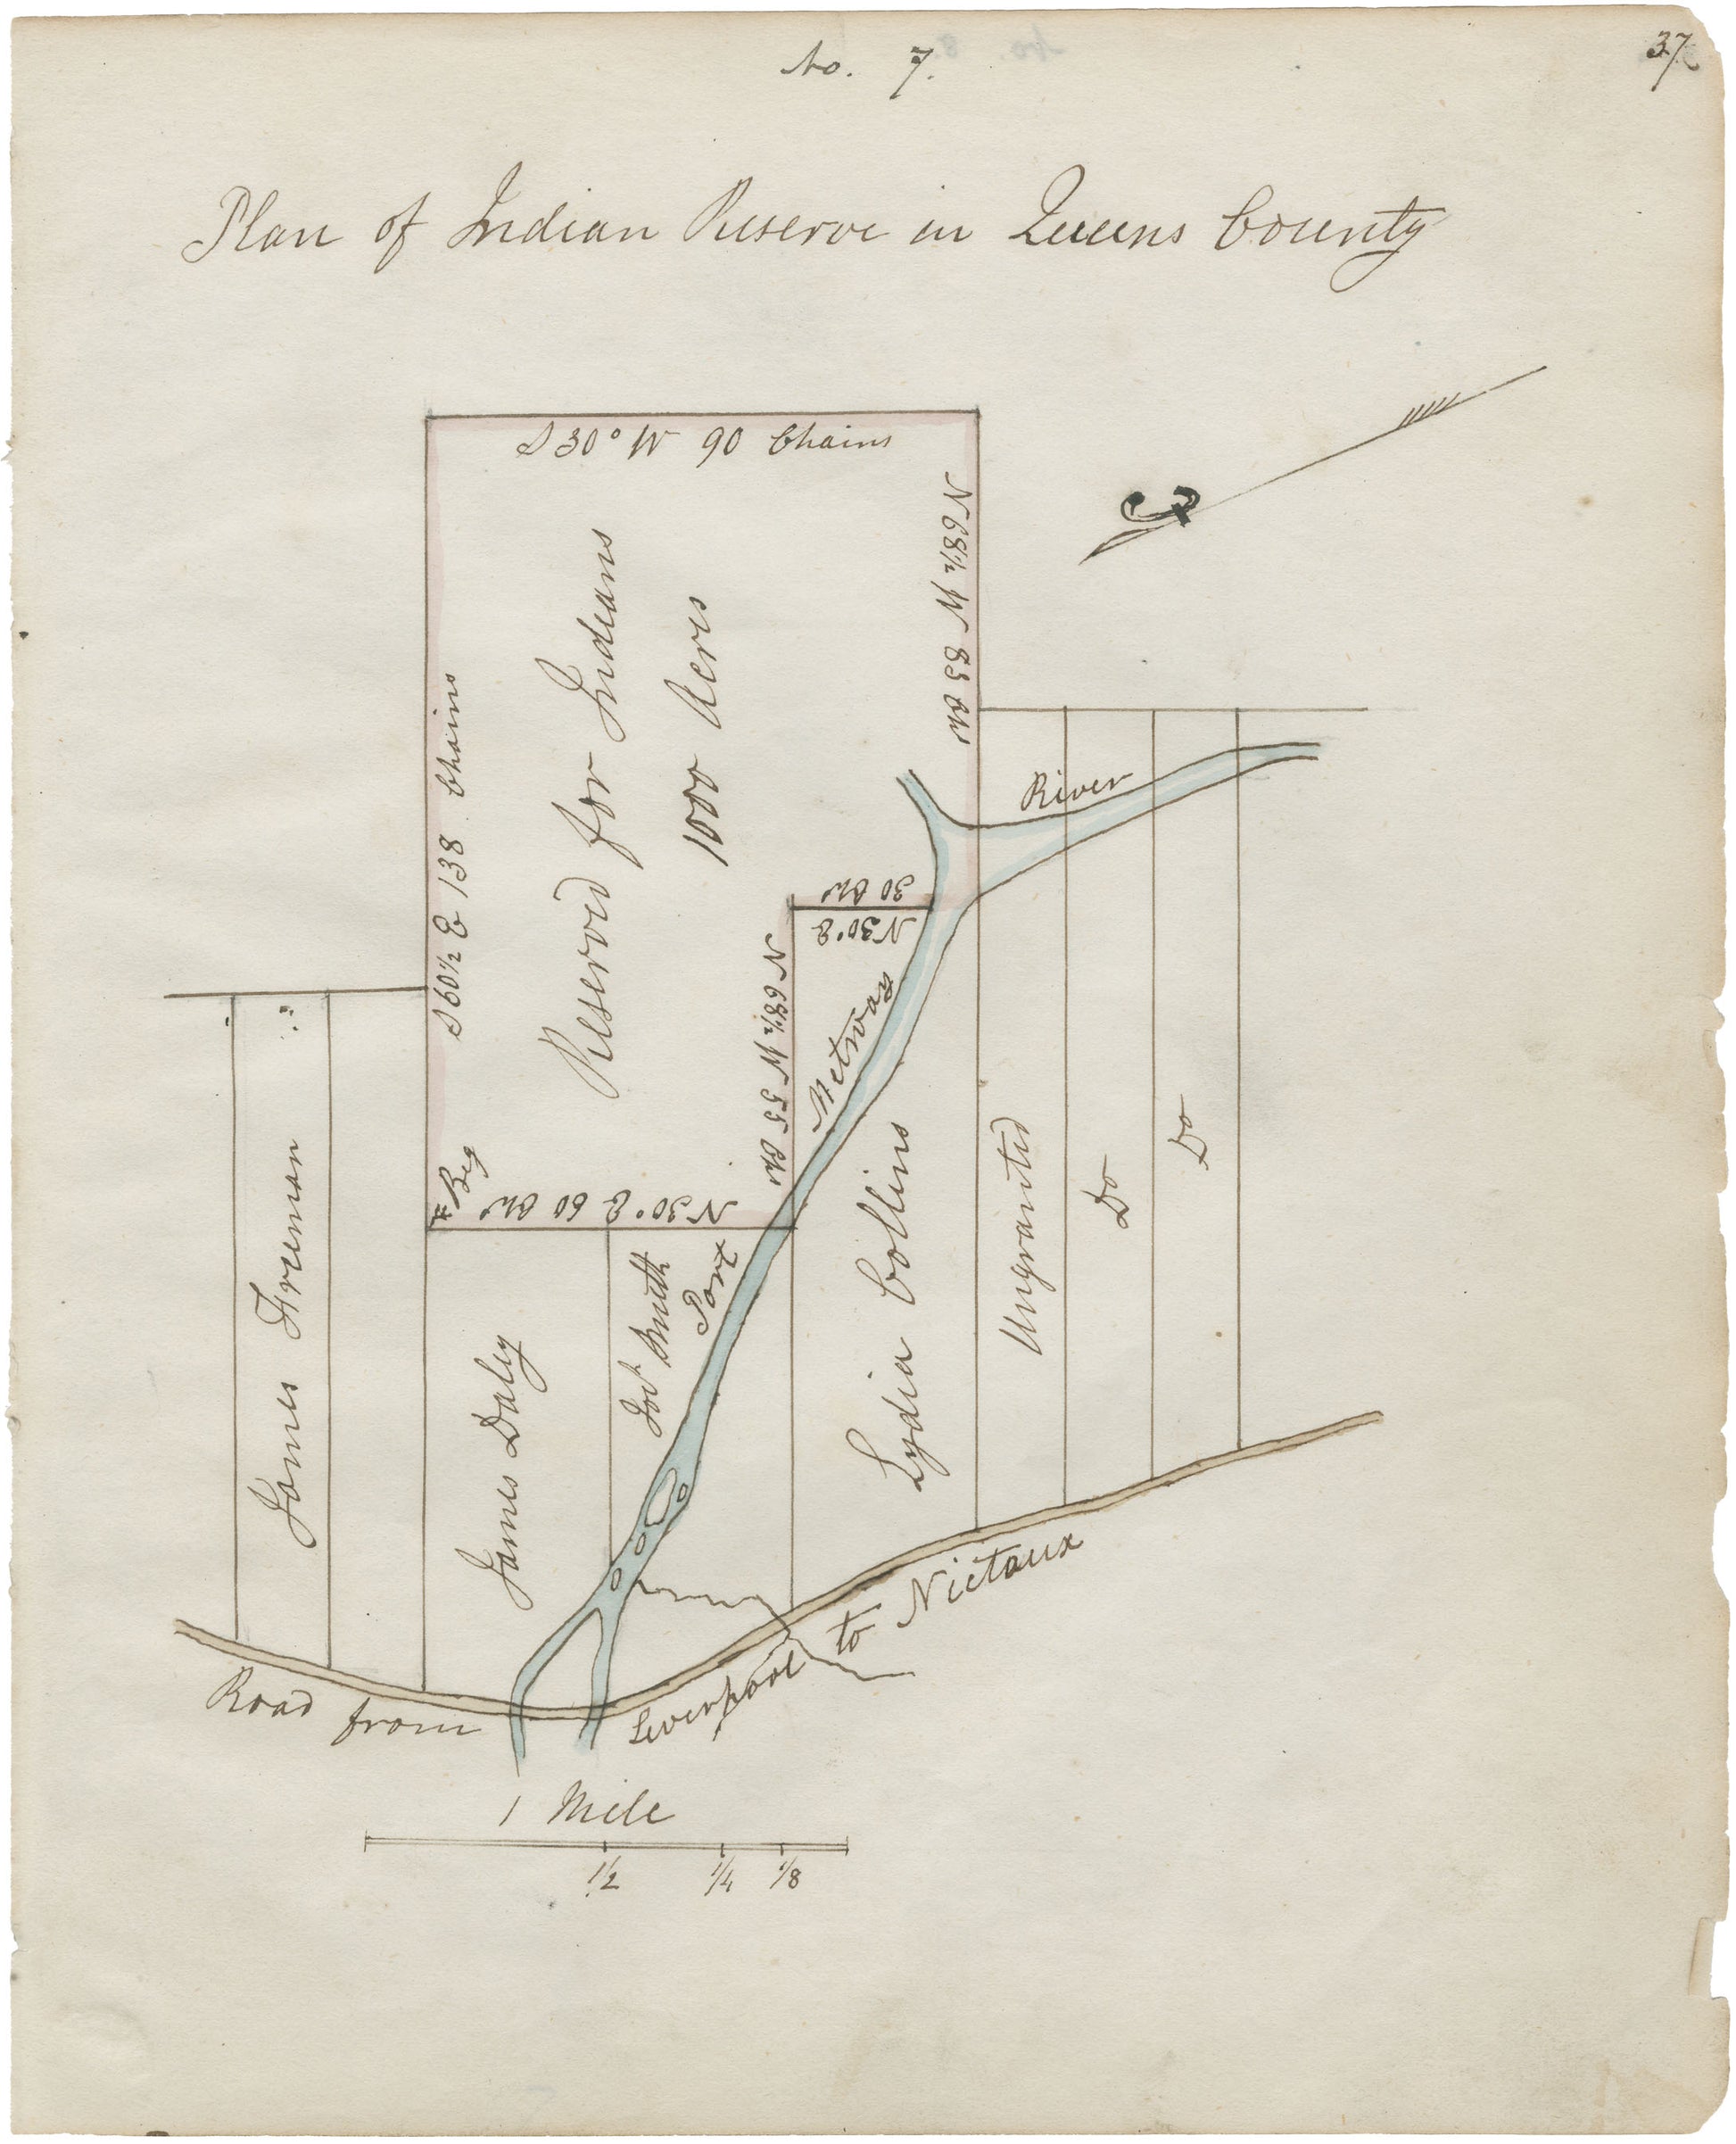 No. 7.
37
Plan of Indian Reserve in Queens County
S 30° W 90 Chains
N 68½ W 83 Ch
S 60½ E 138 Chains
Reserved for Indians
1000 Acres
River
30 Ch
N 30° E
N 68½ W 55 Ch
Metway
Port
* Beg
N 30° E 60 Ch
James Freeman
James Daley
Smith
Lydia Collins
Ungranted
Do
Do
Road from Liverpool to Nictaux
1 Mile
1/2 1/4 1/8